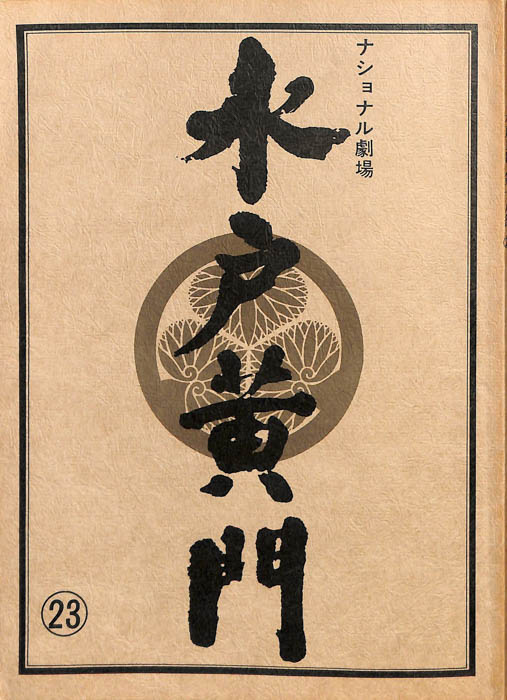 ナショナル劇場
水戸黄門
㉓